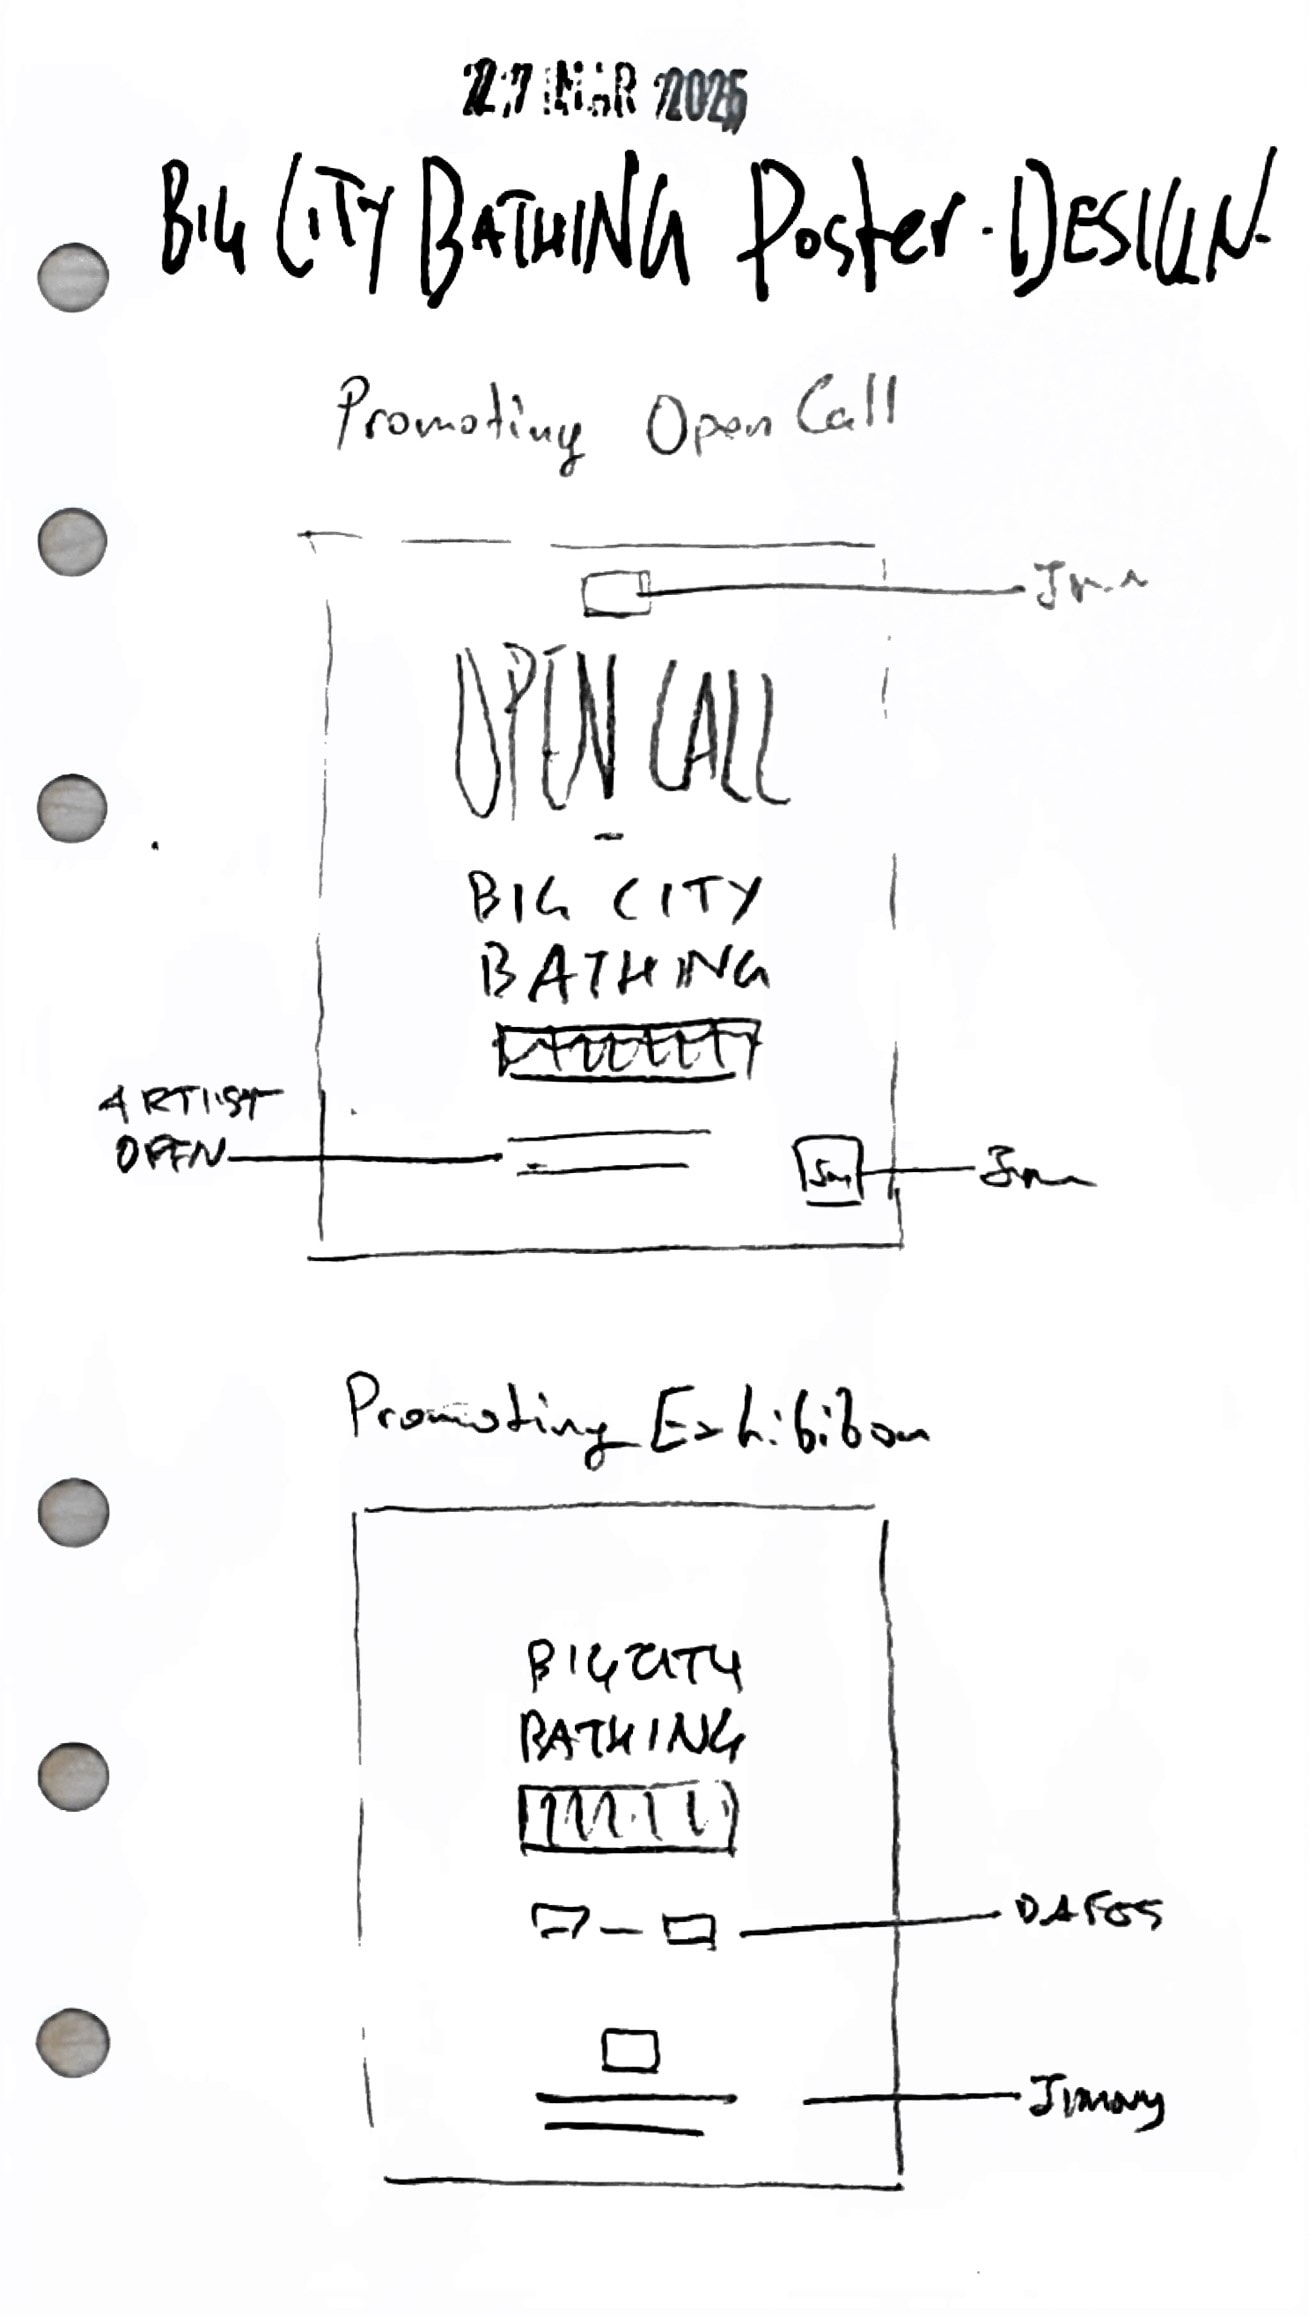 27 MAR 2025
BIG CITY BATHING Poster-DESIGN-
Promoting Open Call
OPEN CALL
-
BIG CITY
BATHING
ARTIST
OPEN
Promoting Exhibition
BIG CITY
BATHING
DATES
Jimmy